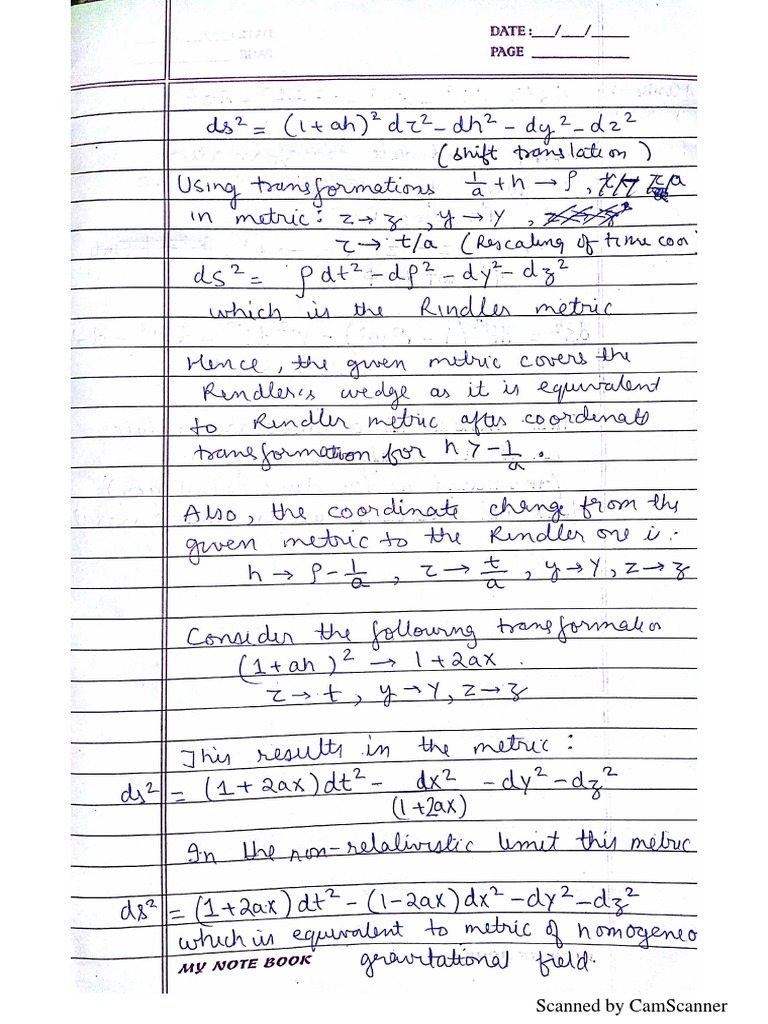 DATE: __/__/____
PAGE ________
ds² = (1+ah)² dτ² - dh² - dy² - dz²
(shift translation)
Using transformations 1/a + h → ρ,
in metric: z → z, y → y,
τ → t/a (Rescaling of time coor
ds² = ρ dt² - dρ² - dy² - dz²
which is the Rindler metric
Hence, the given metric covers the
Rendler's wedge as it is equivalent
to Rindler metric after coordinate
transformation for h > -1/a.
Also, the coordinate change from the
given metric to the Rindler one is:-
h → ρ - 1/a, τ → t/a, y → y, z → z
Consider the following transformation
(1+ah)² → 1+2ax.
τ → t, y → y, z → z
This results in the metric:
ds² = (1+2ax)dt² - dx²/(1+2ax) - dy² - dz²
In the non-relativistic limit this metric
ds² = (1+2ax)dt² - (1-2ax)dx² - dy² - dz²
which is equivalent to metric of homogeneo
MY NOTE BOOK gravitational field.
Scanned by CamScanner